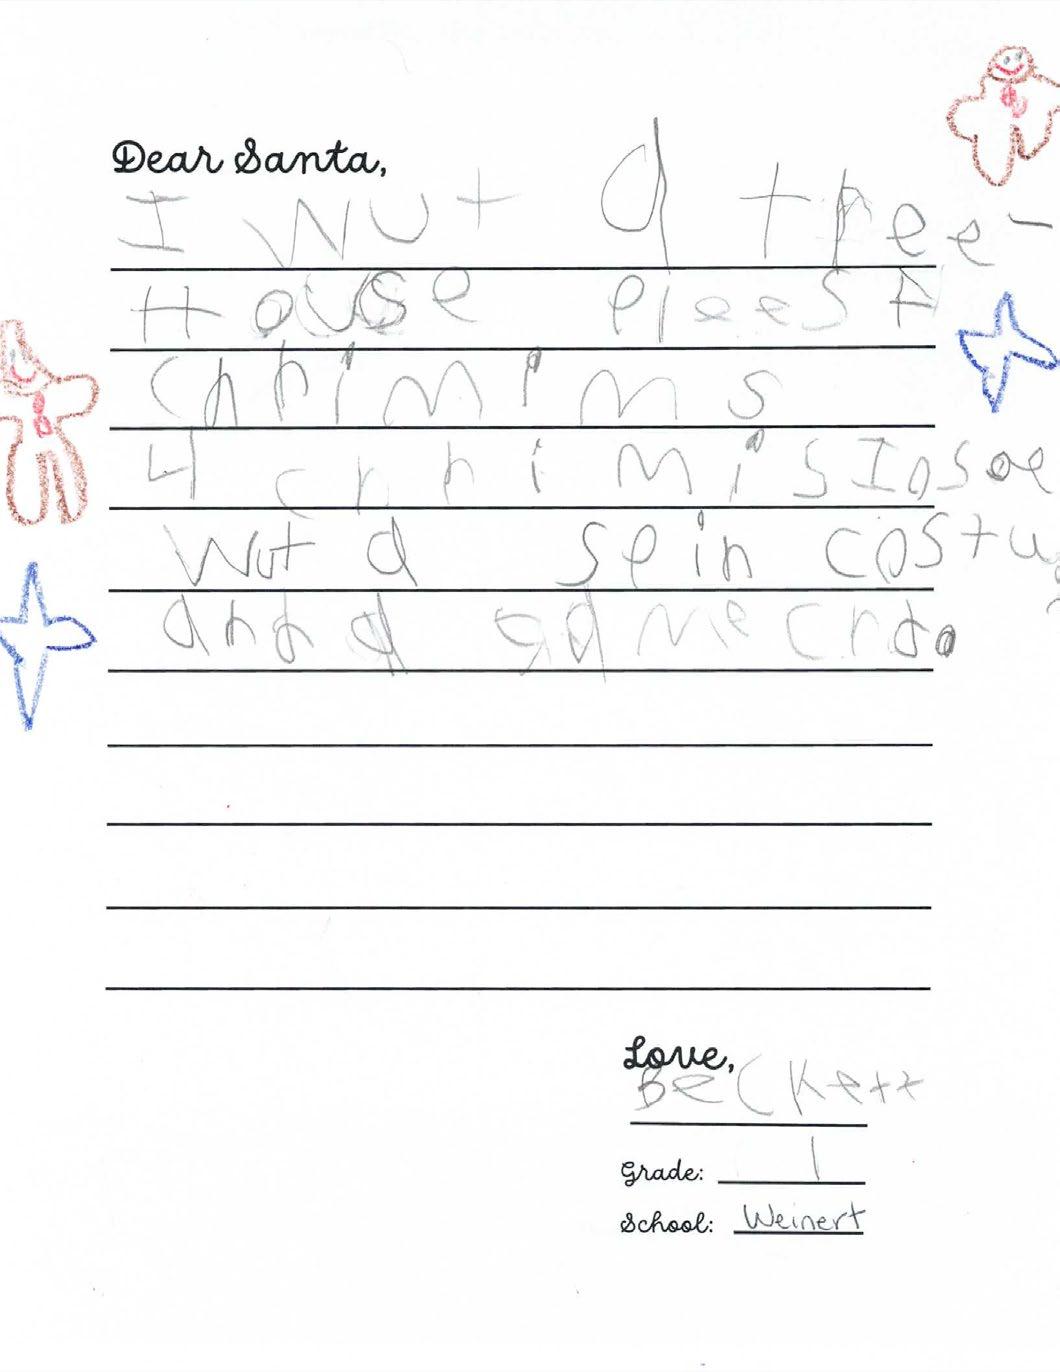 Dear Santa,
I wut a tree-
House pleesf
Chhimims
4 chhimis Iosoe
Wut a spin costu
and a gameCrd.
Love,
Beckett
Grade: 1
School: Weinert